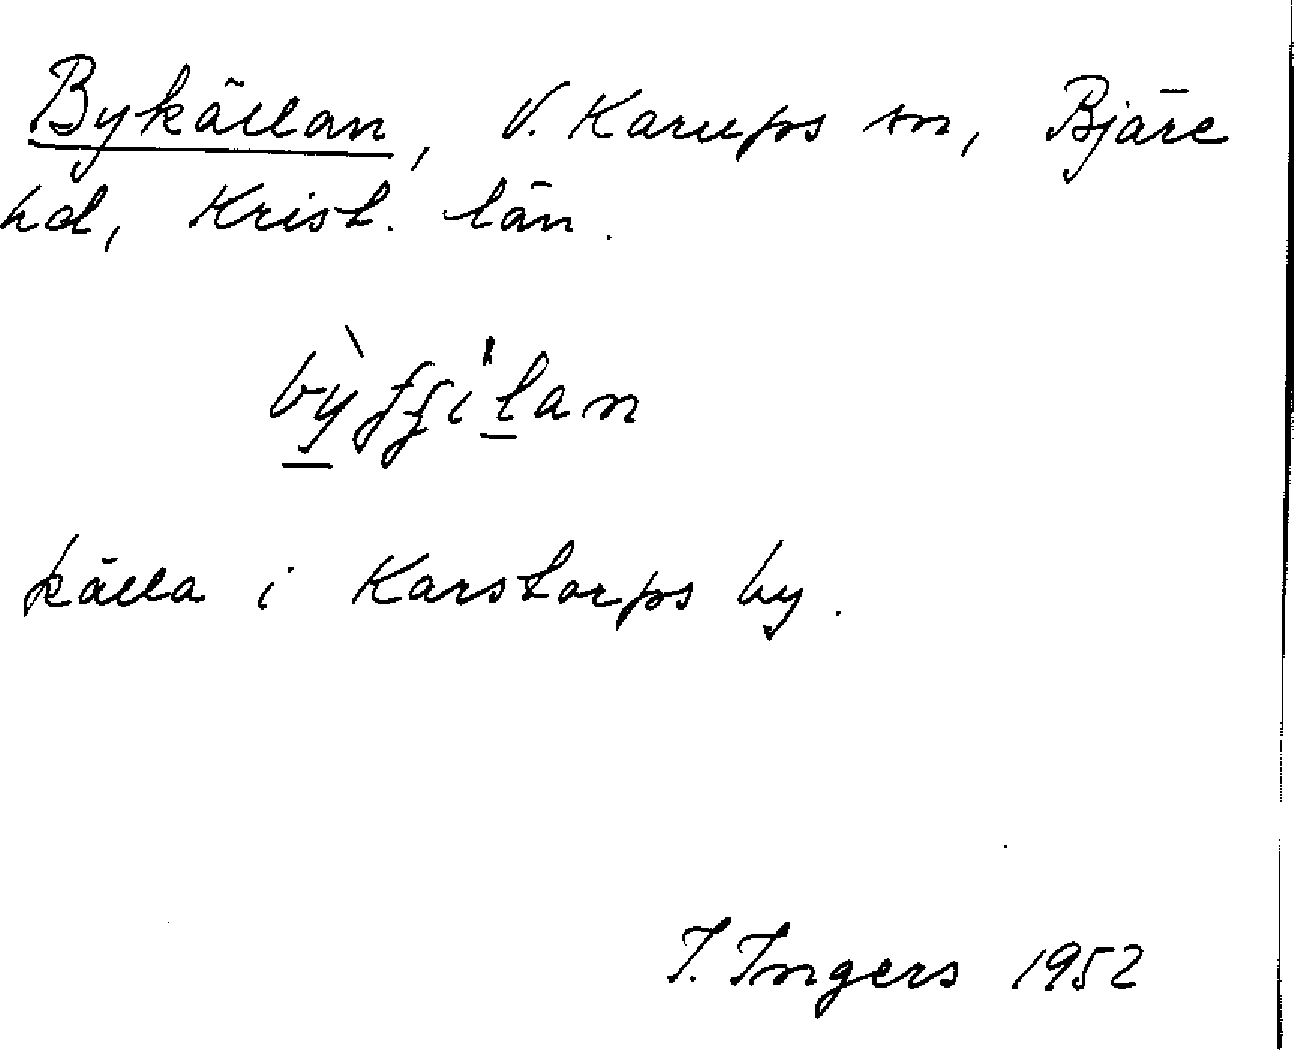 Bykällan, V. Karups sn, Bjäre
hd, Krist. län.
källa i Karstorps by.
I. Ingers 1952